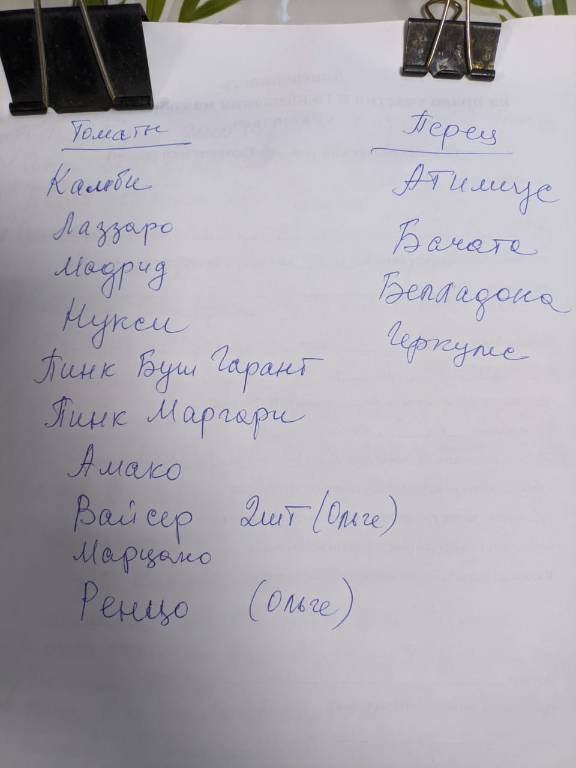 Томаты
Камби
Лаззаро
Мадрид
Нукси
Пинк Буш Гарант
Пинк Маргари
Амако
Вайсер 2шт (Ольге)
Марцано
Ренцо (Ольге)
Перец
Атимус
Бачата
Белладона
Геркулес